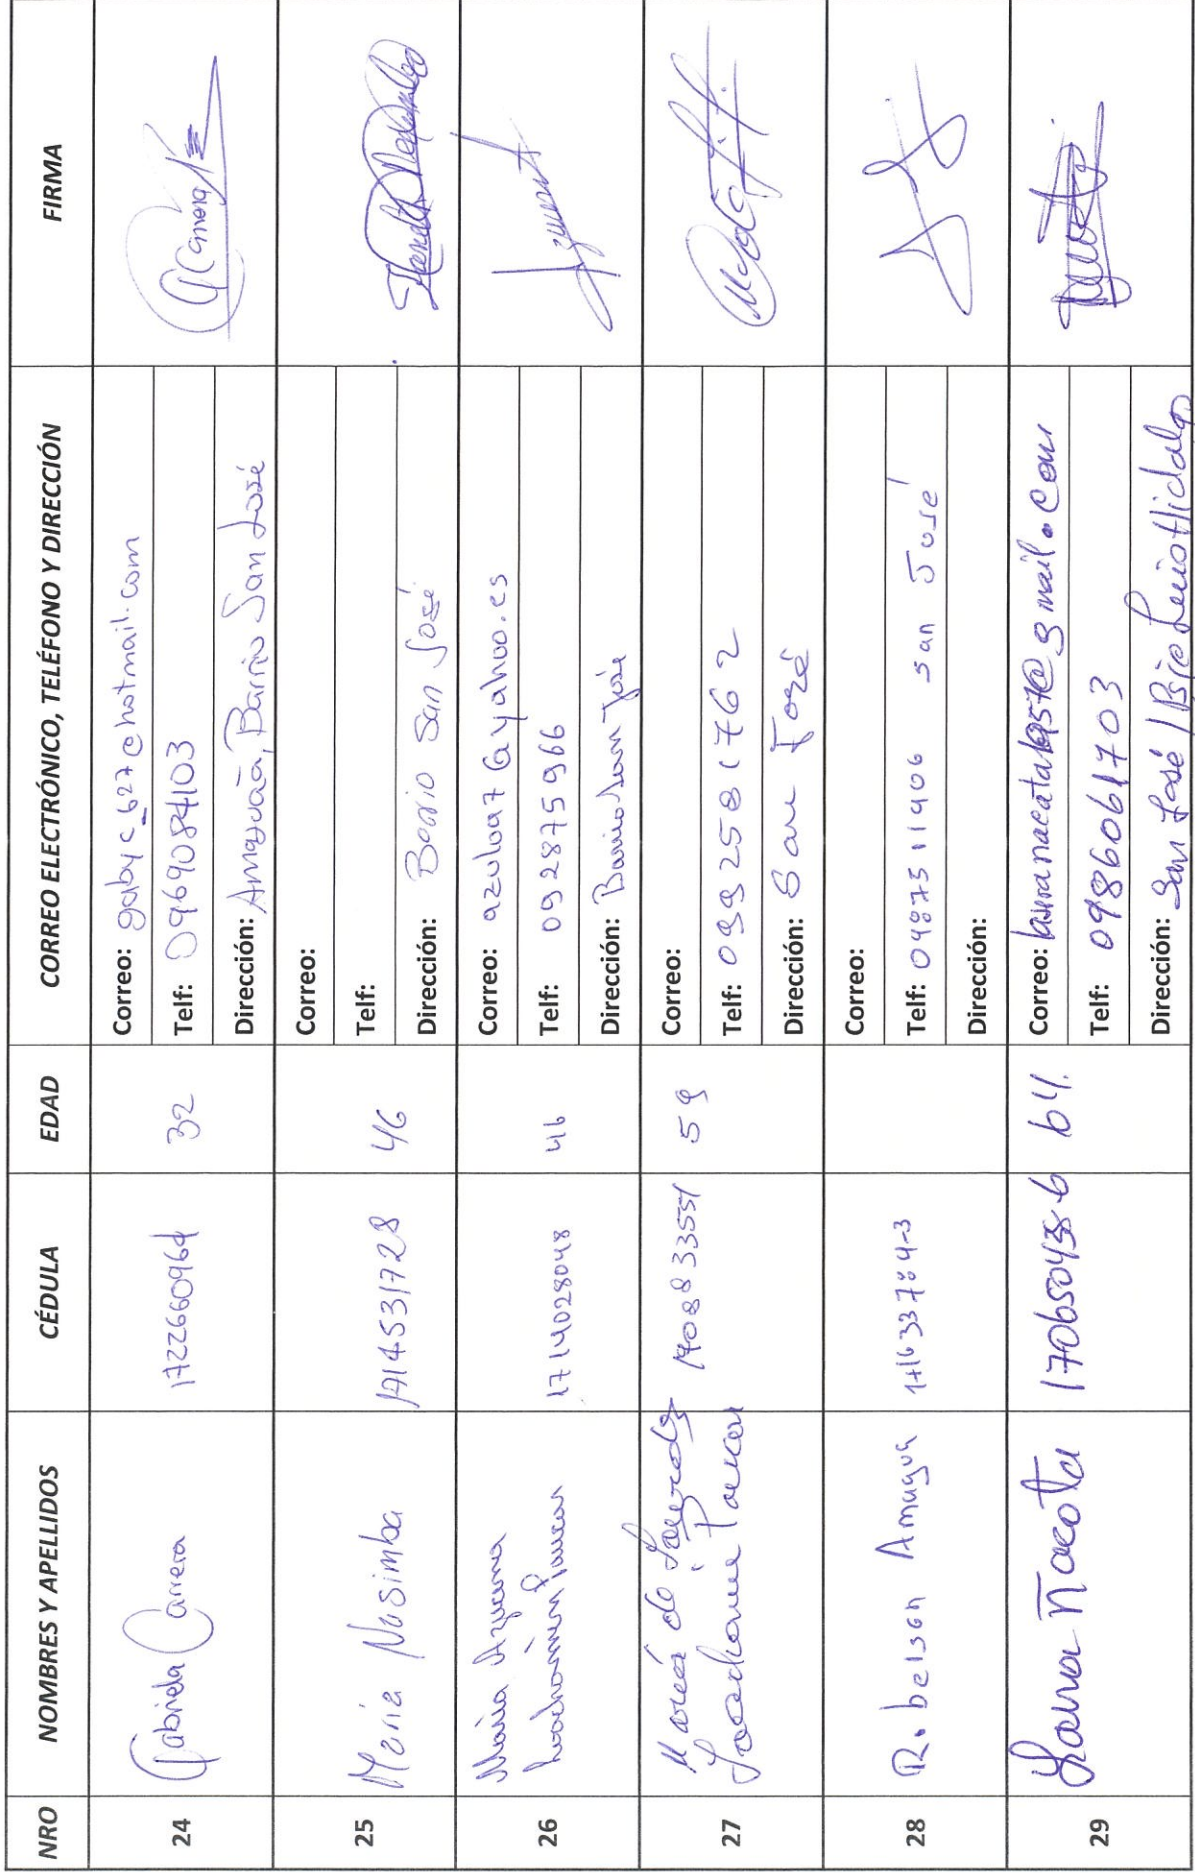 NRO NOMBRES Y APELLIDOS CÉDULA EDAD CORREO ELECTRÓNICO, TELÉFONO Y DIRECCIÓN FIRMA
24 Gabriela Carrera 1722660964 32
Correo: gabyc_627@hotmail.com
Telf: 0969084103
Dirección: Amaguaña, Barrio San José
25 María Nasimba 1714531728 46
Correo:
Telf:
Dirección: Barrio San José
26 María Azucena
1714028048 46
Correo: azulua7@yahoo.es
Telf: 0992875966
Dirección: Barrio San José
27 María de Lourdes
59
Correo:
Telf: 0992581762
Dirección: San José
28 Robelson Amagua 171633784-3
Correo:
Telf: San José
Dirección:
29 Laura Ñacata 64
Correo:
Telf: 0986061703
Dirección: San José / Hidalgo